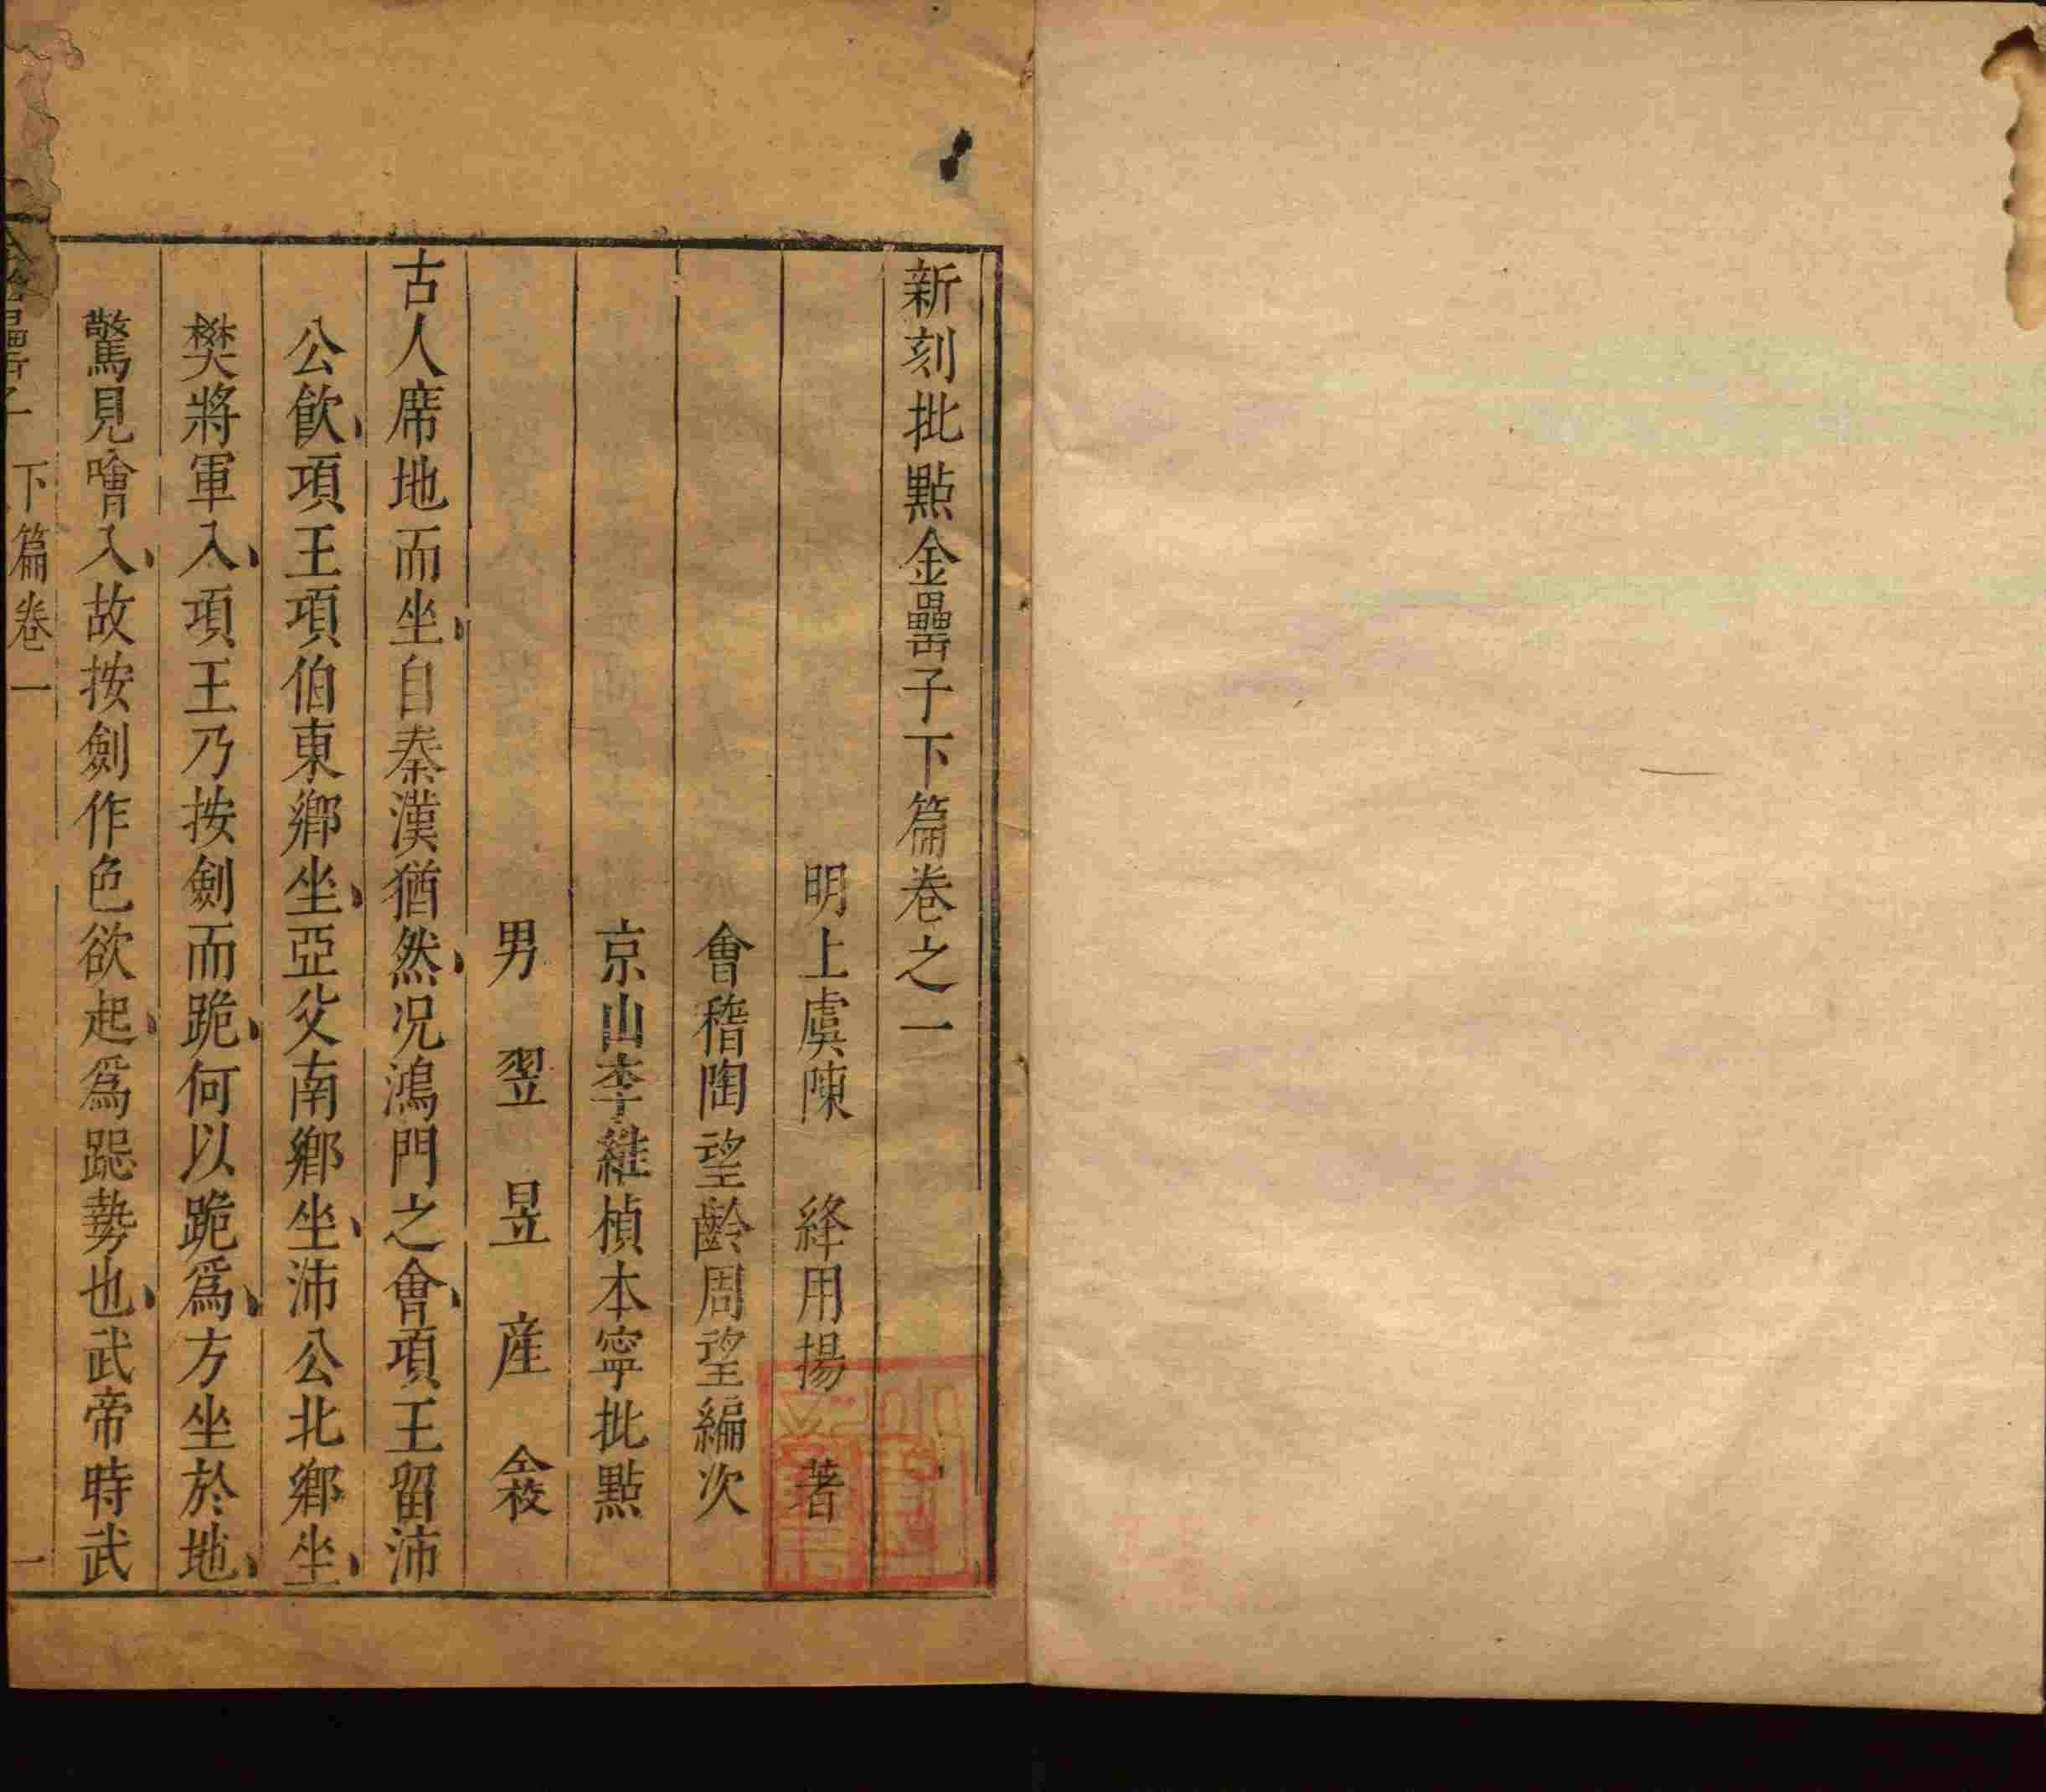 新刻批點金罍子下篇卷之一
明上虞陳 絳用揚 著
會稽陶望齡周望編次
京山李維楨本寧批點
男 翌 昱 產 仝校
古人席地而坐自秦漢猶然况鴻門之會項王留沛
公飲項王項伯東鄉坐亞父南鄉坐沛公北鄉坐
樊將軍入項王乃按劍而跪何以跪爲方坐於地
驚見噲入故按劍作色欲起爲跽勢也武帝時武
金罍子 下篇卷一 一